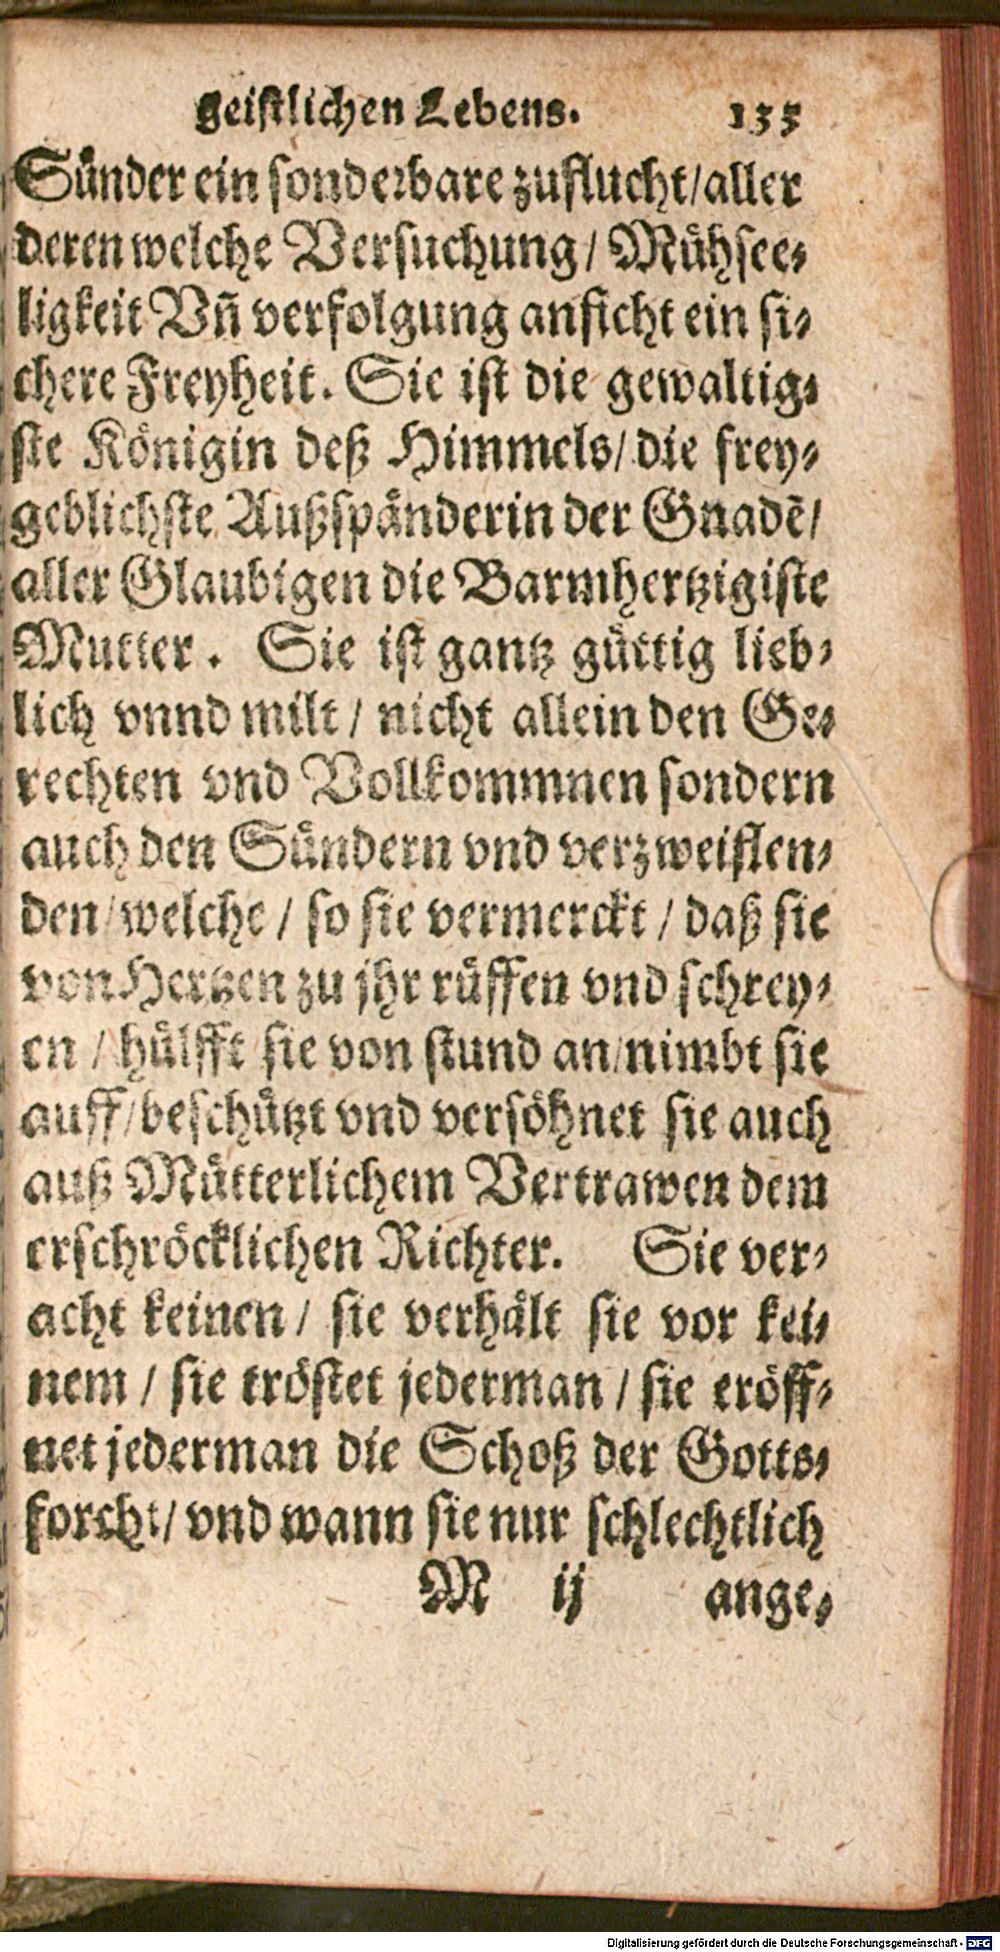 geistlichen Lebens. 133
Sünder ein sonderbare zuflucht/aller
deren welche Versuchung/ Mühsee-
ligkeit Vñ verfolgung anficht ein si-
chere Freyheit. Sie ist die gewaltig-
ste Königin deß Himmels/ die frey-
geblichste Außspänderin der Gnadē/
aller Glaubigen die Barmhertzigiste
Mutter. Sie ist gantz güttig lieb-
lich vnnd milt / nicht allein den Ge-
rechten vnd Vollkommnen sondern
auch den Sündern vnd verzweiflen-
den/ welche / so sie vermerckt / daß sie
von Hertzen zu jhr rüffen vnd schrey-
en / hülfft sie von stund an/nimbt sie
auff/ beschützt vnd versöhnet sie auch
auß Mütterlichem Vertrawen dem
erschröcklichen Richter. Sie ver-
acht keinen / sie verhält sie vor kei-
nem / sie tröstet jederman / sie eröff-
net jederman die Schoß der Gotts-
forcht/ vnd wann sie nur schlechtlich
M ij ange-
Digitalisierung gefördert durch die Deutsche Forschungsgemeinschaft - DFG